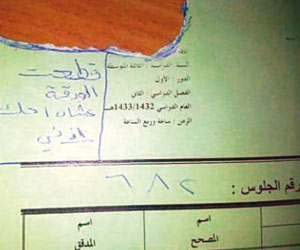 السنة الدراسية : الثالثة المتوسطة
الدور : الأول
الفصل الدراسي : الثاني
العام الدراسي 1433/1432هـ
الزمن : ساعة وربع الساعة
قطعت
الورقة
عشان احك
اذني
رقم الجلوس : ٦٨٢
اسم المصحح
اسم المدقق